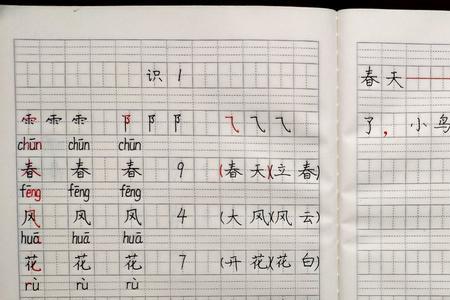 识 1
⻗ ⻗ ⻗ 阝 阝 阝 ⺄ ⺄ ⺄
chūn chūn chūn
春 春 春 9 (春天)(立春)
fēng fēng fēng
风 风 风 4 (大风)(风云)
huā huā huā
花 花 花 7 (开花)(花白)
rù rù rù
春天
了,小鸟